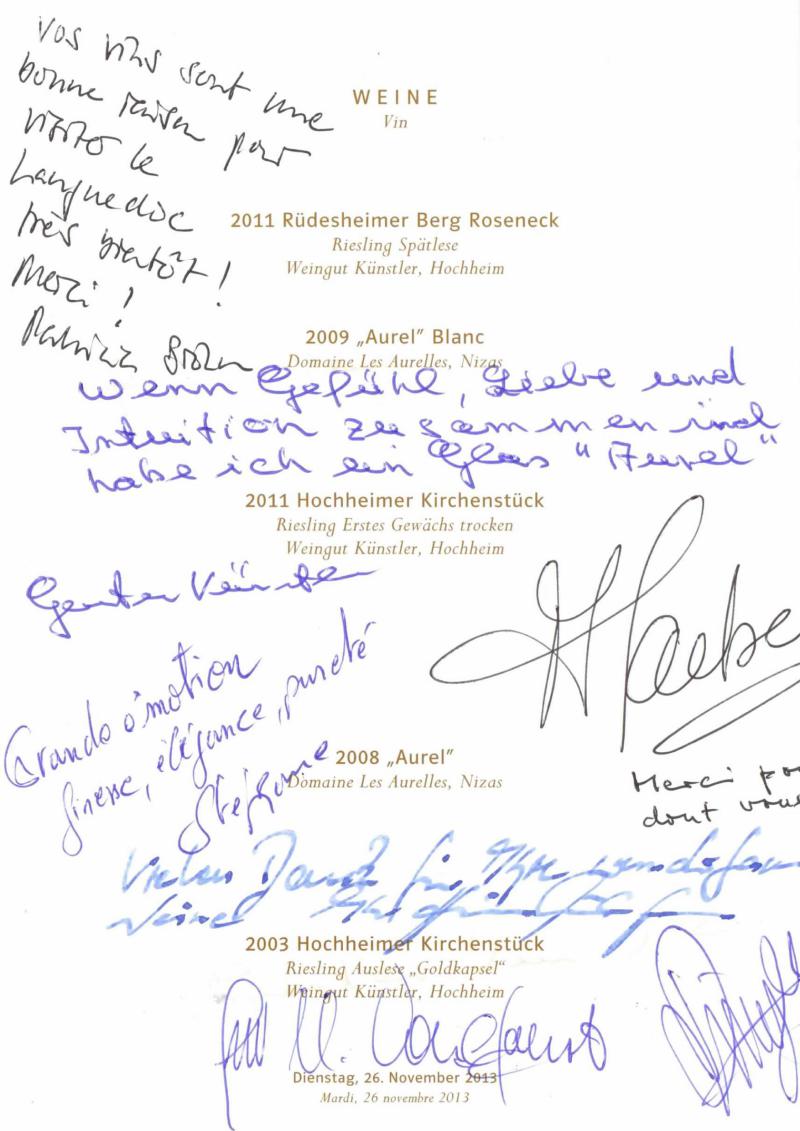 Vos vins sont une
bonne raison pour
visiter le
Languedoc
très bientôt !
Merci !
WEINE
Vin
2011 Rüdesheimer Berg Roseneck
Riesling Spätlese
Weingut Künstler, Hochheim
2009 „Aurel” Blanc
Domaine Les Aurelles, Nizas
Wenn Gefühl, Liebe und
Intuition zusammen sind
habe ich ein Glas "Aurel"
2011 Hochheimer Kirchenstück
Riesling Erstes Gewächs trocken
Weingut Künstler, Hochheim
Grande émotion
finesse, élégance, pureté
Stéphane
2008 „Aurel”
Domaine Les Aurelles, Nizas
Merci po
dont vous
Vielen Dank für Ihre
Weine
2003 Hochheimer Kirchenstück
Riesling Auslese „Goldkapsel“
Weingut Künstler, Hochheim
Dienstag, 26. November 2013
Mardi, 26 novembre 2013